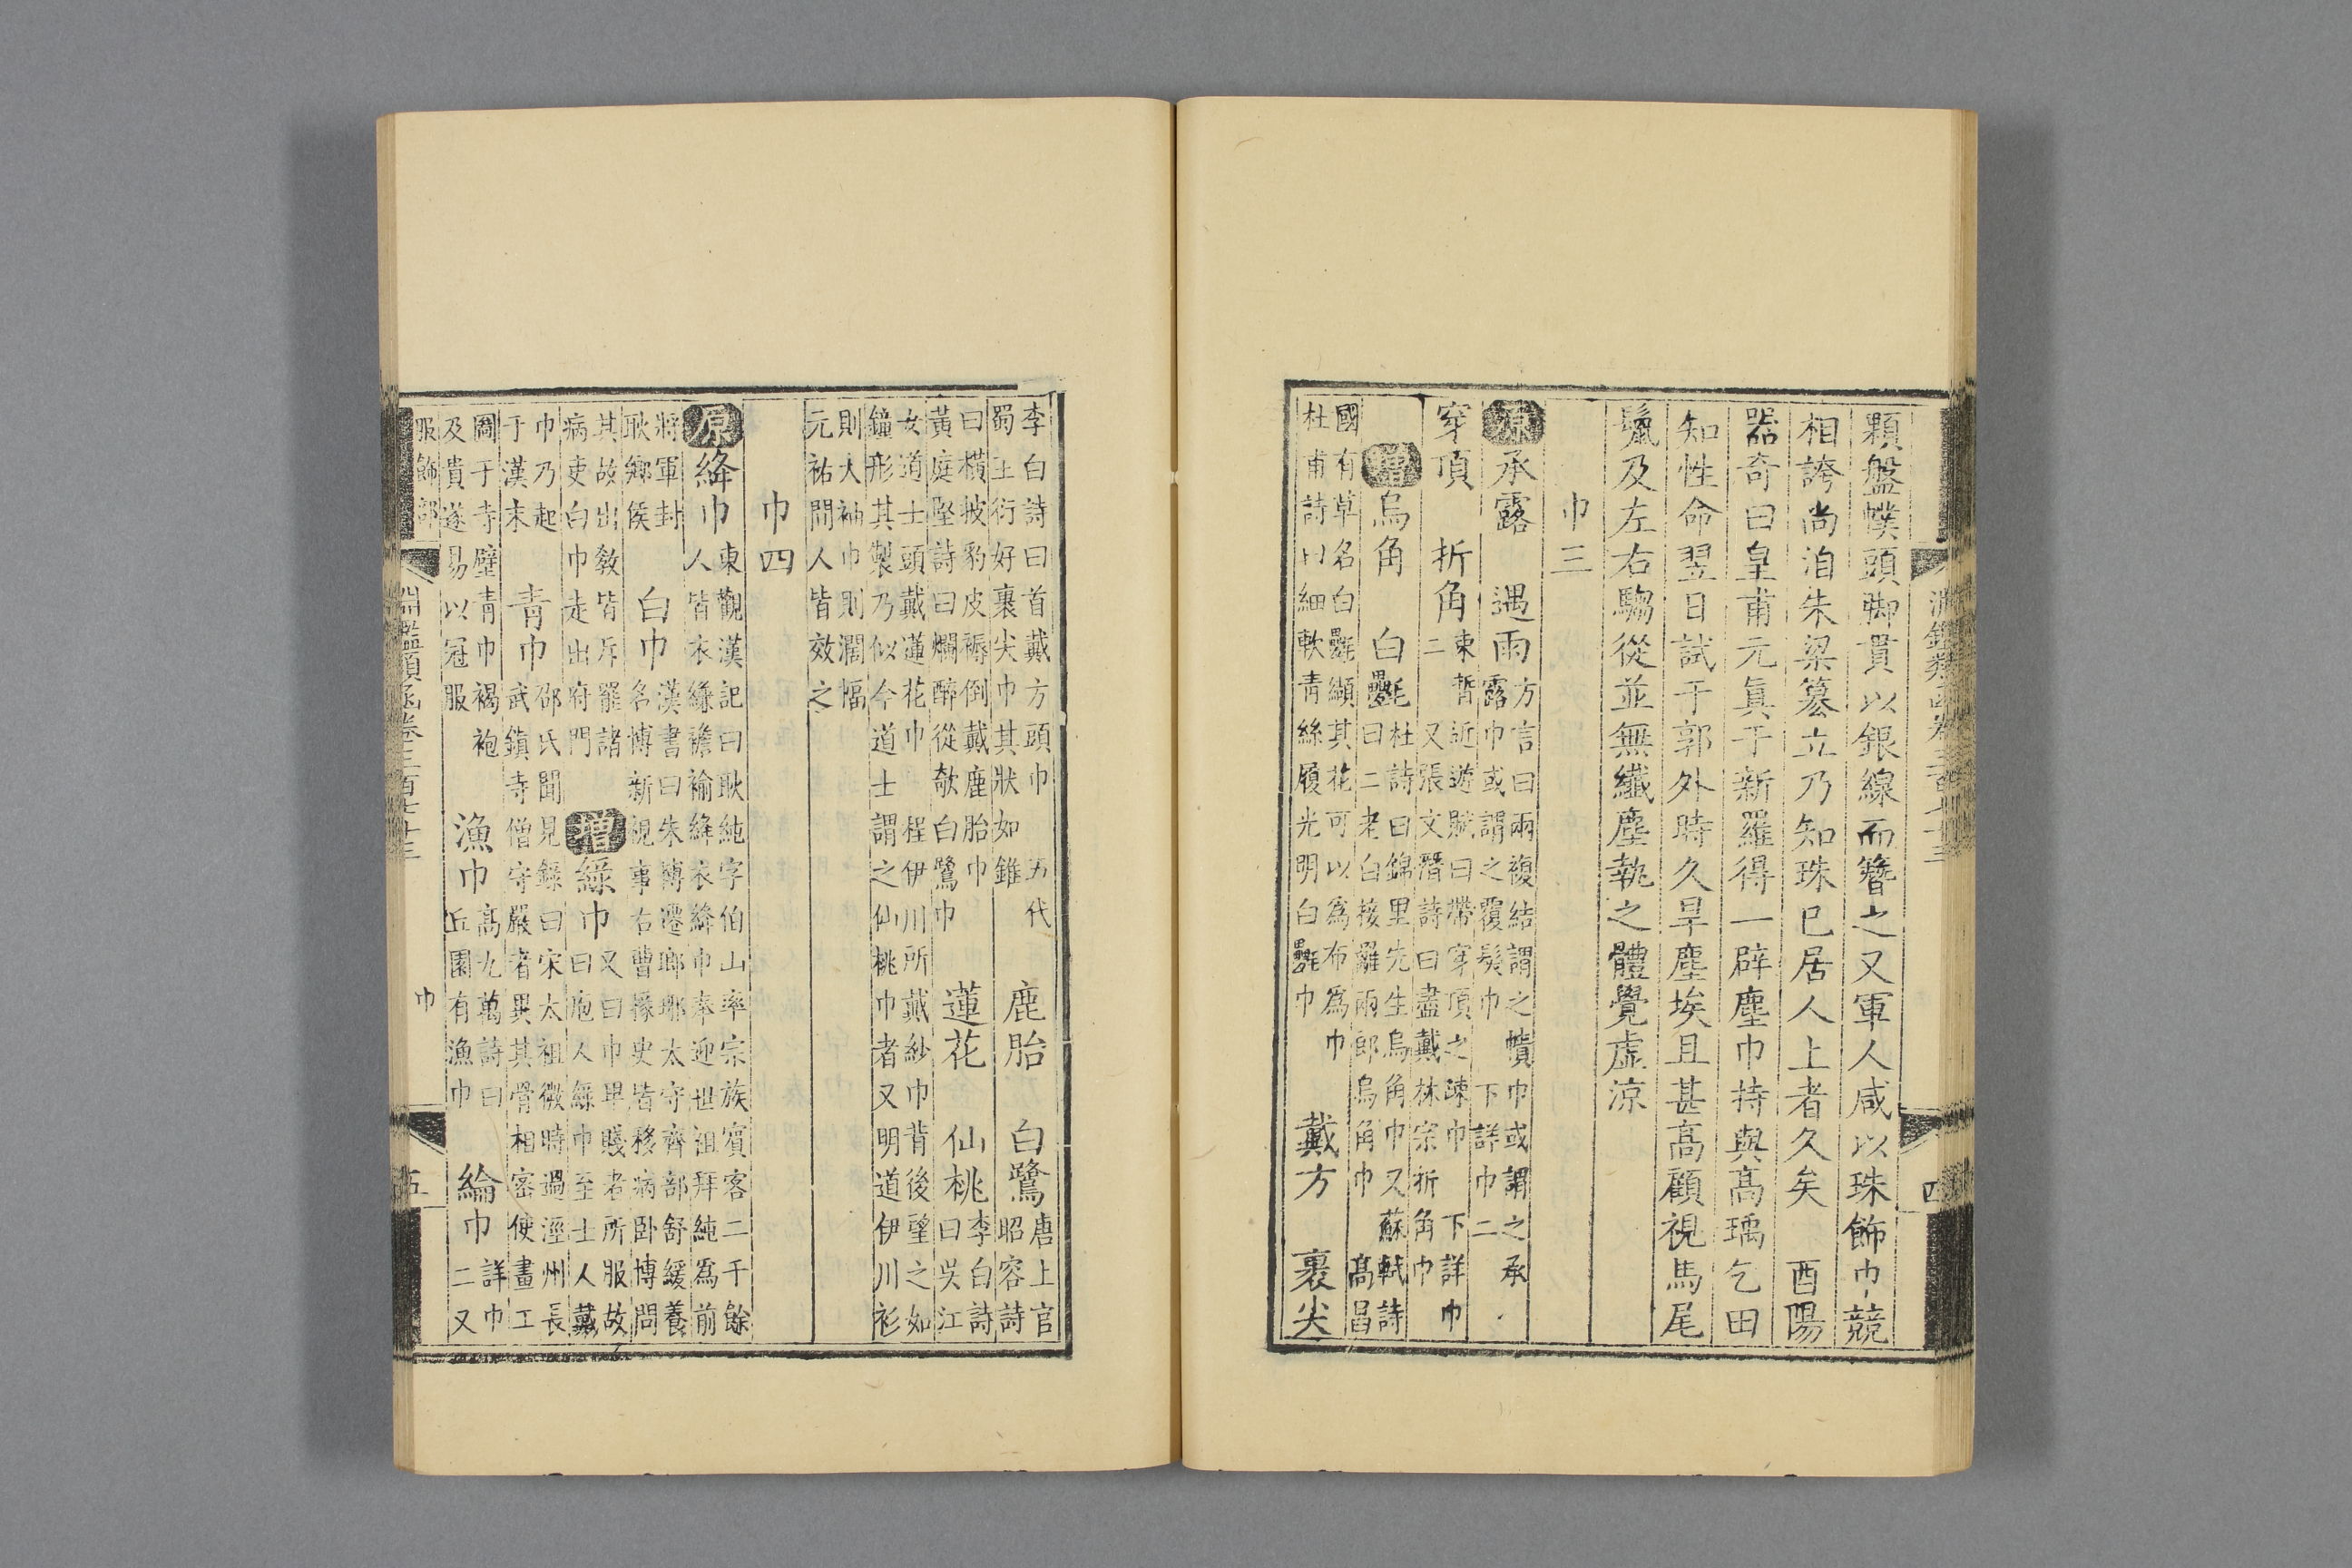 淵鑑類函卷三百七十三
四
顆盤幞頭脚貫以銀線而簪之又軍人咸以珠飾巾競
相誇尚洎朱梁簒立乃知珠巳居人上者久矣　酉陽
器奇曰皇甫元眞于新羅得一辟塵巾持與髙瑀乞田
知性命翌日試于郭外時久旱塵埃且甚髙顧視馬尾
鬛及左右騶從並無纖塵執之體覺虛涼
巾三
原承露　遇雨方言曰兩複結謂之幘巾或謂之承
露巾或謂之覆髮巾　下詳巾二
穿頂　折角束晳近遊賦曰帶穿頂之疎巾　下詳巾
二　又張文潛詩曰盡戴林宗折角巾
增烏角　白㲲杜詩曰錦里先生烏角巾又蘇軾詩
曰二老白接䍦兩郎烏角巾　髙昌
國有草名白㲲纈其花可以為布為巾
杜甫詩曰細軟青絲履光明白㲲巾　戴方　裹尖
李白詩曰首戴方頭巾　五代
蜀王衍好裹尖巾其狀如錐　鹿胎　白鷺唐上官
昭容詩
曰橫披豹皮褥倒戴鹿胎巾
黃庭堅詩曰爛醉從欹白鷺巾　蓮花　仙桃李白詩
曰吳江
女道士頭戴蓮花巾　程伊川所戴紗巾背後望之如
鐘形其製乃似今道士謂之仙桃巾者又明道伊川衫
則大袖巾則濶幅
元祐間人皆效之
巾四
原絳巾東觀漢記曰耿純字伯山率宗族賓客二千餘
人皆衣縑襜褕絳衣絳巾奉迎世祖拜純爲前
將軍封
耿鄉侯　白巾漢書曰朱博遷瑯琊太守齊部舒緩養
名博新視事右曹掾史皆移病臥博問
其故出敎皆斥罷諸
病吏白巾走出府門　增綠巾又曰巾卑賤者所服故
曰庖人綠巾至士人戴
巾乃起
于漢末　青巾邵氏聞見錄曰宋太祖微時過涇州長
武鎮寺僧守嚴者異其骨相密使畫工
圖于寺壁青巾褐袍
及貴遂易以冠服　漁巾髙九萬詩曰
丘園有漁巾　綸巾詳巾
二又
服飾部
淵鑑類函卷三百七十三
巾
五